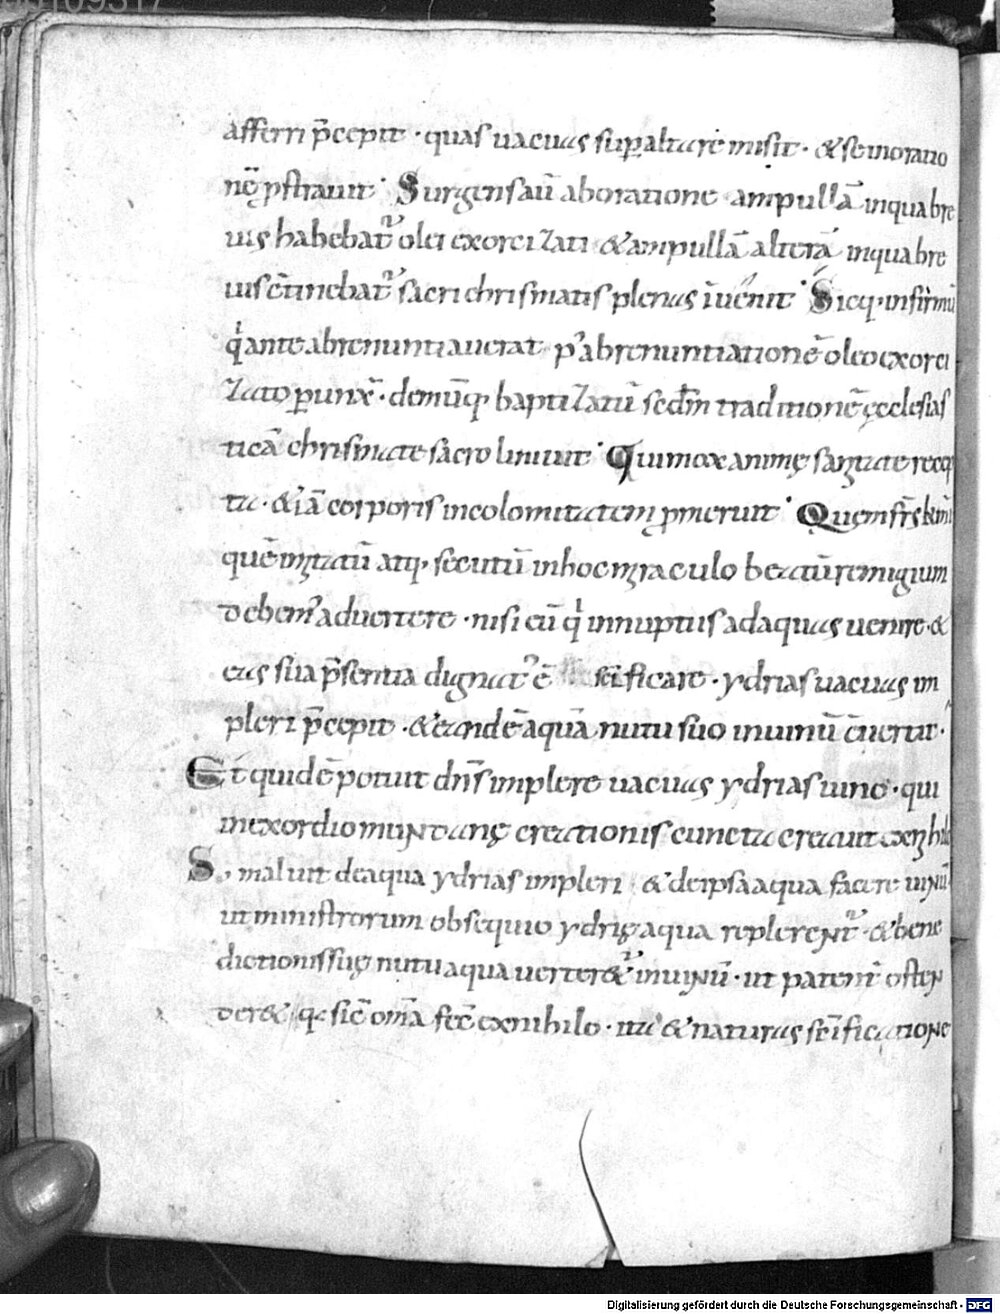 afferri p̄cepit · quas uacuas sup̱ altare misit · & se in oratio
nē ꝓstrauit · Surgens aū ab oratione ampullā in qua bre
uis habebat᷒ olei exorcizati & ampullā alterā in qua bre
uis c̄tinebat᷒ sacri chrismatis plenas īuenit · Sicq· infirmū
qͥ ante abrenuntiauerat p᷒ abrenuntiationē oleo exorci
zato ꝑunx̄ · demūq· baptizatū sedm̄ traditionē ęcclesias
ticā chrismate sacro liniuit · Qui mox animę sanitate recep
ta · & iā corporis incolomitatem ꝓmeruit · Quem fr̄s km̄i
quē imitatū atq· secutū in hoc miraculo beatū remigium
debem᷒ aduertere · nisi eū qͥ in nuptiis ad aquas uenire · &
eas sua p̄sentia dignat᷒ ē sc̄ificare · ydrias uacuas im
pleri p̄cepit · & eandē aquā nutu suo in uinū c̄uertit ·
Et quidē potuit dn̄s implere uacuas ydrias uino · qui
in exordio mundanę creationis cuncta creauit ex nihilo
S; maluit de aqua ydrias impleri · & de ipsa aqua facere uinū
ut ministrorum obsequio ydrię aqua replerent᷒ · & bene
dictionis suę nutu aqua uerter&᷒ in uinū · ut patent᷒ osten
der& q· sic̄ om̄a fec̄ ex nihilo · ita & naturas sc̄ificatione
Digitalisierung gefördert durch die Deutsche Forschungsgemeinschaft - DFG